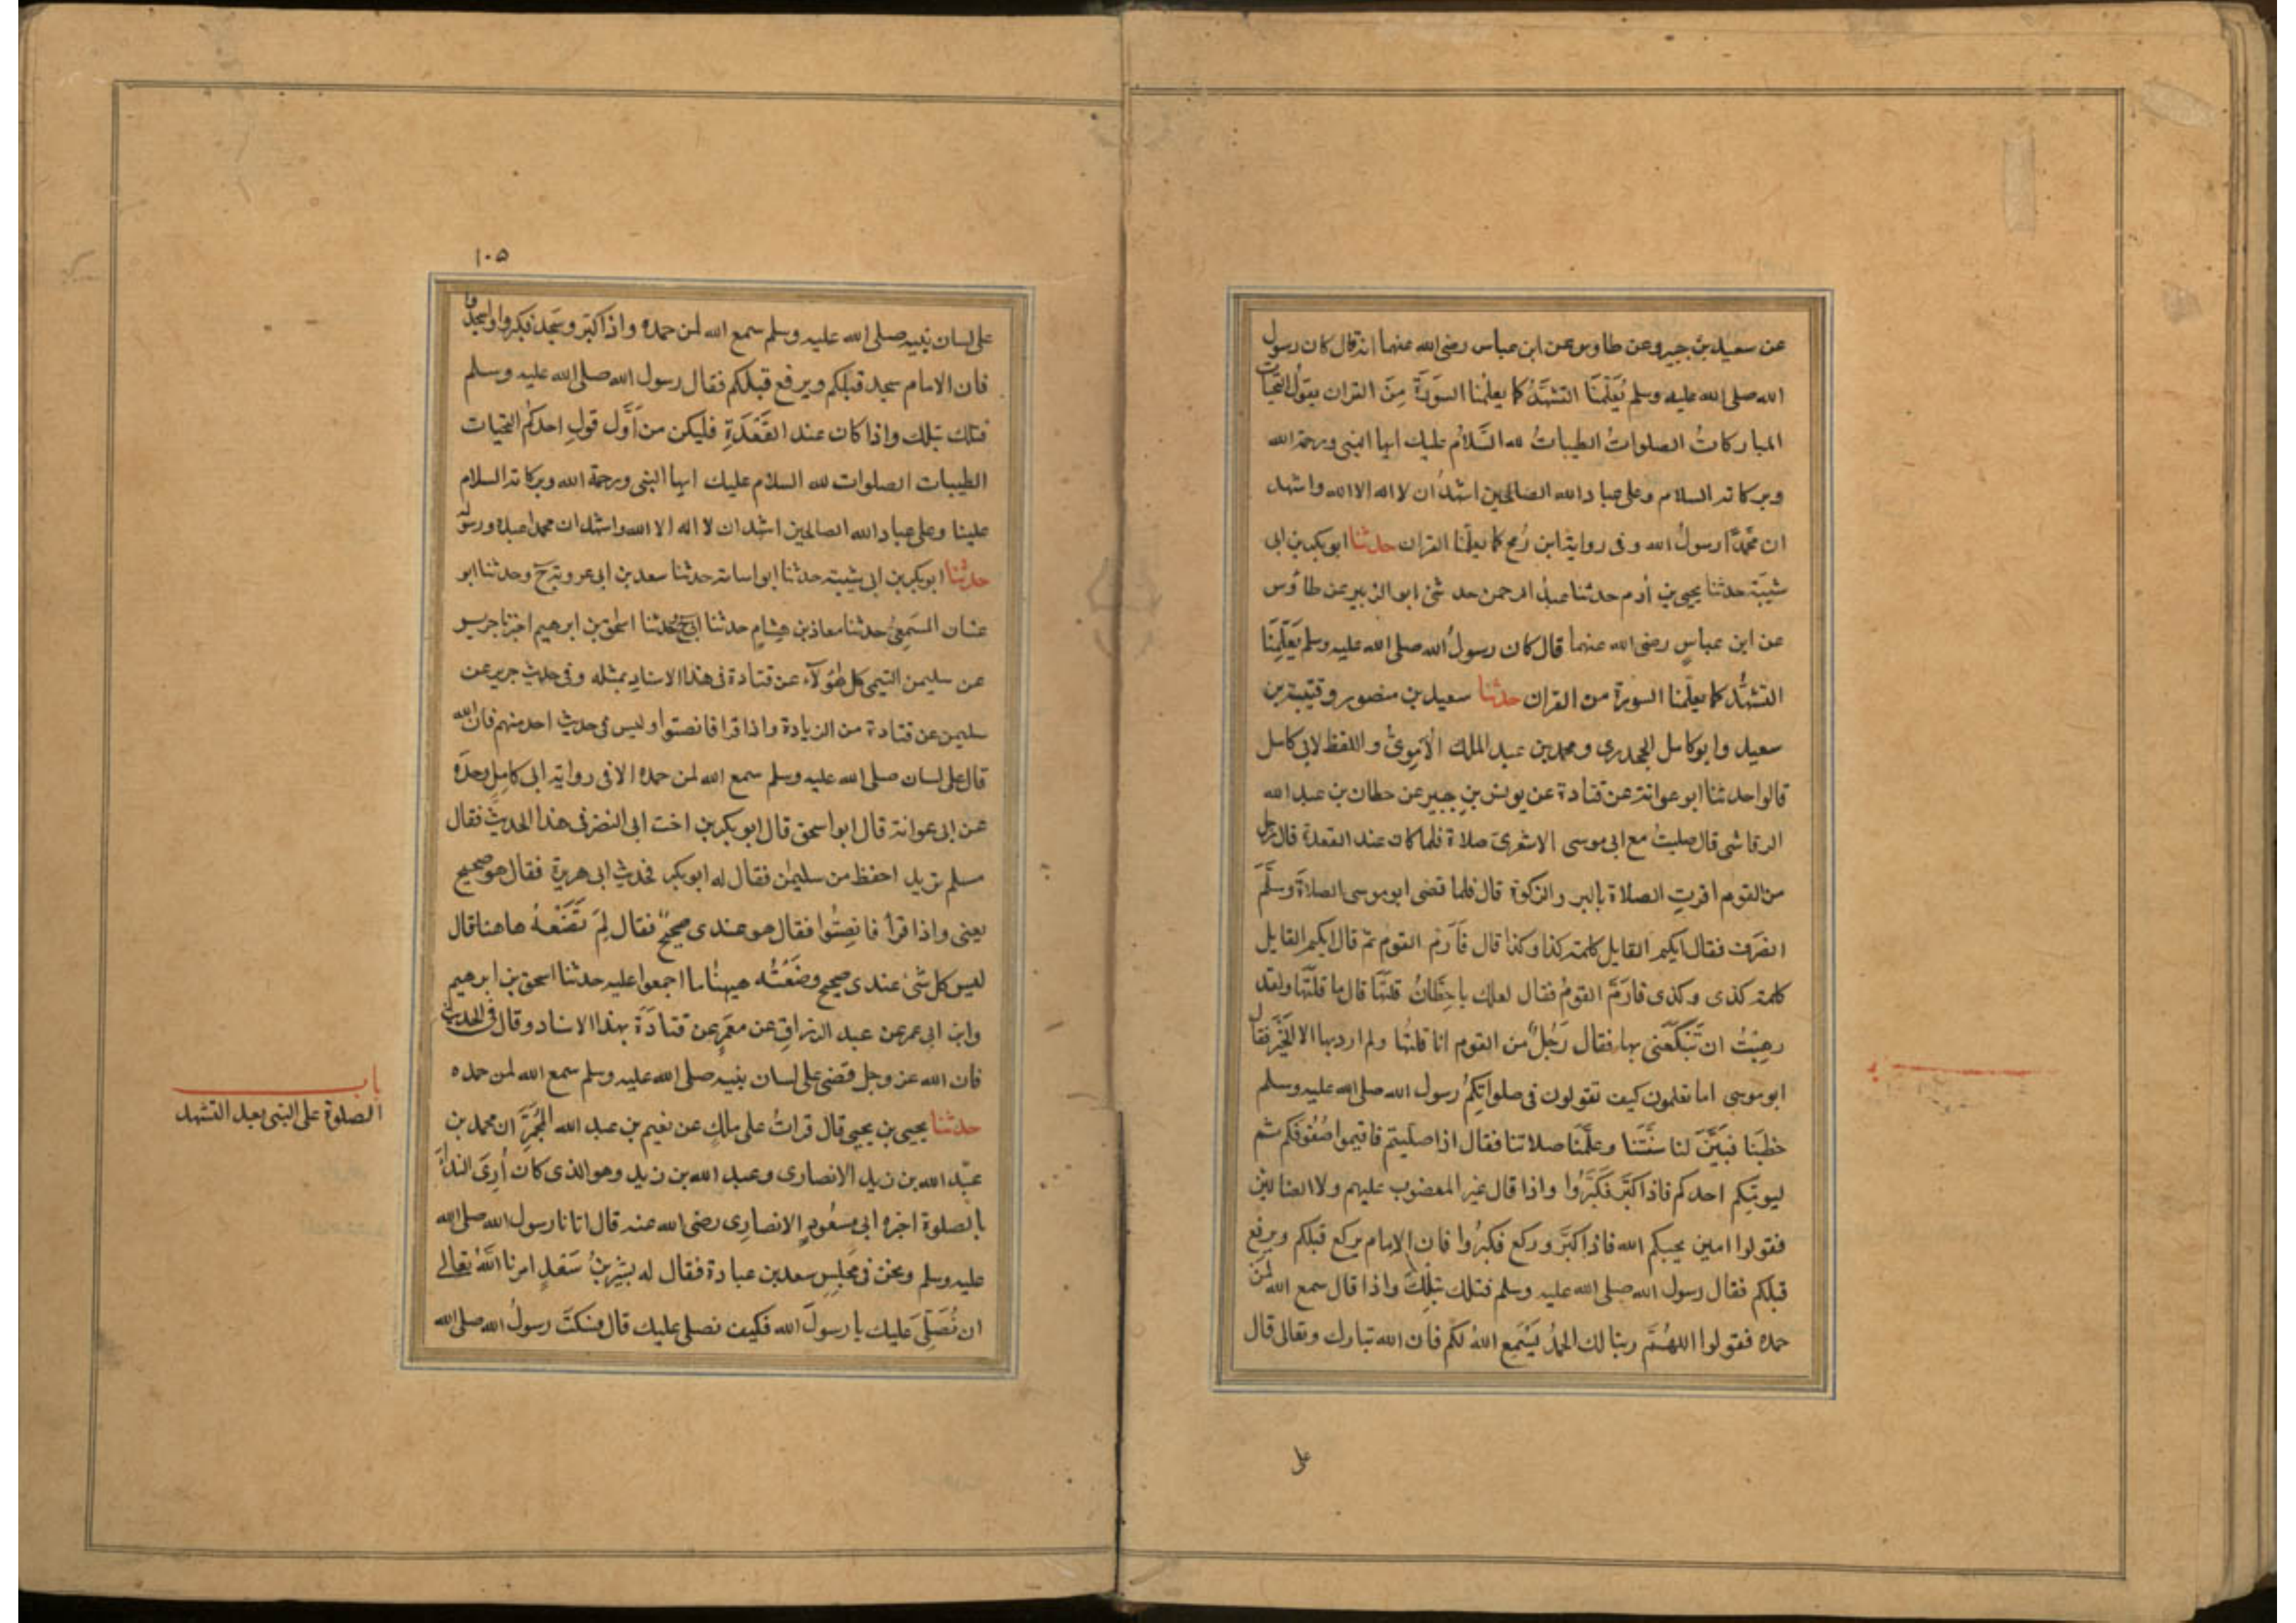 عن سعيد بن جبير وعن طاوس عن ابن عباس رضى الله عنهما انه قال كان رسول
الله صلى الله عليه وسلم يُعَلّمنَا التشهّدُ كما يعلمُنا السورَةَ مِنَ القران يقولُ التحيات
المباركاتُ الصلواتُ الطيباتُ لله السّلامُ عليك ايها النبى ورحمة الله
وبركاته السلام وعلى عباد الله الصالحين اشهدُ ان لا اله الا الله واشهد
ان محمّدًا رسولُ الله وفى رواية ابن رُمح كما يعلّمنا القران حدثنا ابو بكر بن ابى
شيبَة حدثنا يحيى بن أدم حدثنا عبدُ الرحمن حدثنى ابو الزبير عن طاؤس
عن ابن عباسٍ رضى الله عنهما قال كان رسولُ الله صلى الله عليه وسلم يَعَلّمِنَا
التشهُّد كما يعلّمنا السورة من القران حدثنا سعيد بن منصور وقتيبة بن
سعيد وابو كامل الجحدرى ومحمد بن عبد الملك الأمِوىُّ واللفظ لابى كامل
قالوا حدثنا ابو عوانة عن قتادة عن يونس بنِ جبيرٍ عن حطان بن عبد الله
الرقاشى قال صليتُ مع ابى موسى الاشعرىّ صلاة فلما كان عند القعدة قال رجل
من القوم اقرتِ الصلاة بالبر والزكوة قال فلما قضى ابو موسى الصلاةَ وسَلَّمَ
انصَرف فقال ايكم القايل كلمة كذا وكذا قال فَأَرَمّ القوم ثم قال ايكم القايل
كلمة كذى وكذى فارَمّ القومُ فقال لعلك يا حِطَّانُ قلتَهَا قال ما قلتُهَا ولقد
رهِبْتُ ان تَبْكَعَنى بها فقال رَجُلٌ من القوم انا قلتُها ولم ارد بها الا الخَيْرَ فقال
ابو موسى اما تعلمون كيف تقولون فى صلواتِكمُ رسول الله صلى الله عليه وسلم
خطَبَنا فبَيَّنَ لنا سنّتَنا وعلَّمَنا صلاتنا فقال اذا صلّيتم فاقيموا صُفُوفكم ثم
ليومّكم احدكم فاذا كبّر فكَبِّرُوا واذا قال غير المغضوب عليهم ولا الضالين
فقولوا امين يجبكم الله فاذا كبَّرَ وركع فكبِّرُوا فان الامام يركع قبلكم ويرفع
قبلكم فقال رسول الله صلى الله عليه وسلم فتلك بتلِكَ واذا قال سمع الله لمن
حمده فقولوا اللهُمَّ ربنا لك الحمدُ يَسْمَعِ اللهُ لكم فان الله تبارك وتعالى قال
على
١٠٥
على لسان نبيه صلى الله عليه وسلم سمع الله لمن حمده واذا كبّر وسَجد فكبروا واسجدوا
فان الامام سجد قبلكم ويرفع قبلكم فقال رسول الله صلى الله عليه وسلم
فتلك بتلك واذا كان عند القَعْدَةِ فليكن من أوَّل قولِ احدكم التحيات
الطيبات الصلوات لله السلام عليك ايها النبى ورحمة الله وبركاته السلام
علينا وعلى عباد الله الصالحين اشهد ان لا اله الا الله واشهد ان محمدا عبده ورسوله
حدثنا ابو بكر بن ابى شيبة حدثنا ابو اسامة حدثنا سعد بن ابى عروبة ح وحدثنا ابو
غسان المسمَعِىُّ حدثنا معاذ بن هِشامٍ حدثنا ابى ح وحدثنا اسحق بن ابرهيم اخبرنا جرير
عن سليمن التيمى كل هؤلآء عن قتادة فى هذا الاسنادِ بمثله وفى حديث جرير عن
سليمن عن قتادة من الزيادة واذا قرا فانصتوا وليس فى حديث احد منهم فان الله
قال على لسان صلى الله عليه وسلم سمع الله لمن حمده الا فى رواية ابى كامِلٍ وحدَه
عن ابى عوانة قال ابو اسحق قال ابو بكر بن اخت ابى النضر فى هذا الحديث فقال
مسلم تريد احفظ من سليمٰن فقال له ابو بكر فحديث ابى هريرة فقال هو صحيح
يعنى واذا قرأ فانصِتُوا فقال هو عندى صحيحٌ فقال لِمَ تَضَعْهُ هاهنا قال
ليس كل شىءٍ عندى صحيح وضَعْتُه هيهنا ما اجمعوا عليه حدثنا اسحق بن ابرهيم
وابن ابى عمر عن عبد الرزاقِ عن معمَرٍ عن قتادَةَ بهذا الاسناد وقال فى الحديث
فان الله عز وجل قضى على لسان نبيه صلى الله عليه وسلم سمع الله لمن حمده
باب
الصلوة على النبى بعد التشهد
حدثنا يحيى بن يحيى قال قراتُ على مالكٍ عن نعيم بن عبد الله المُجمِرَ ان محمد بن
عبد الله بن زيد الانصارى وعبد الله بن زيد وهو الذى كان أُرِىَ النداءَ
بالصلوة اخبره ابى مسعُودٍ الانصارِى رضى الله عنه قال اتانا رسول الله صلى الله
عليه وسلم ونحن فى مجلِسِ سعد بن عبادة فقال له بشيرُ بنُ سَعْدٍ امرنا اللهُ تعالى
ان نُصَلّىَ عَليك يا رسولَ الله فكيف نصلى عليك قال فسكتَ رسولُ الله صلى الله